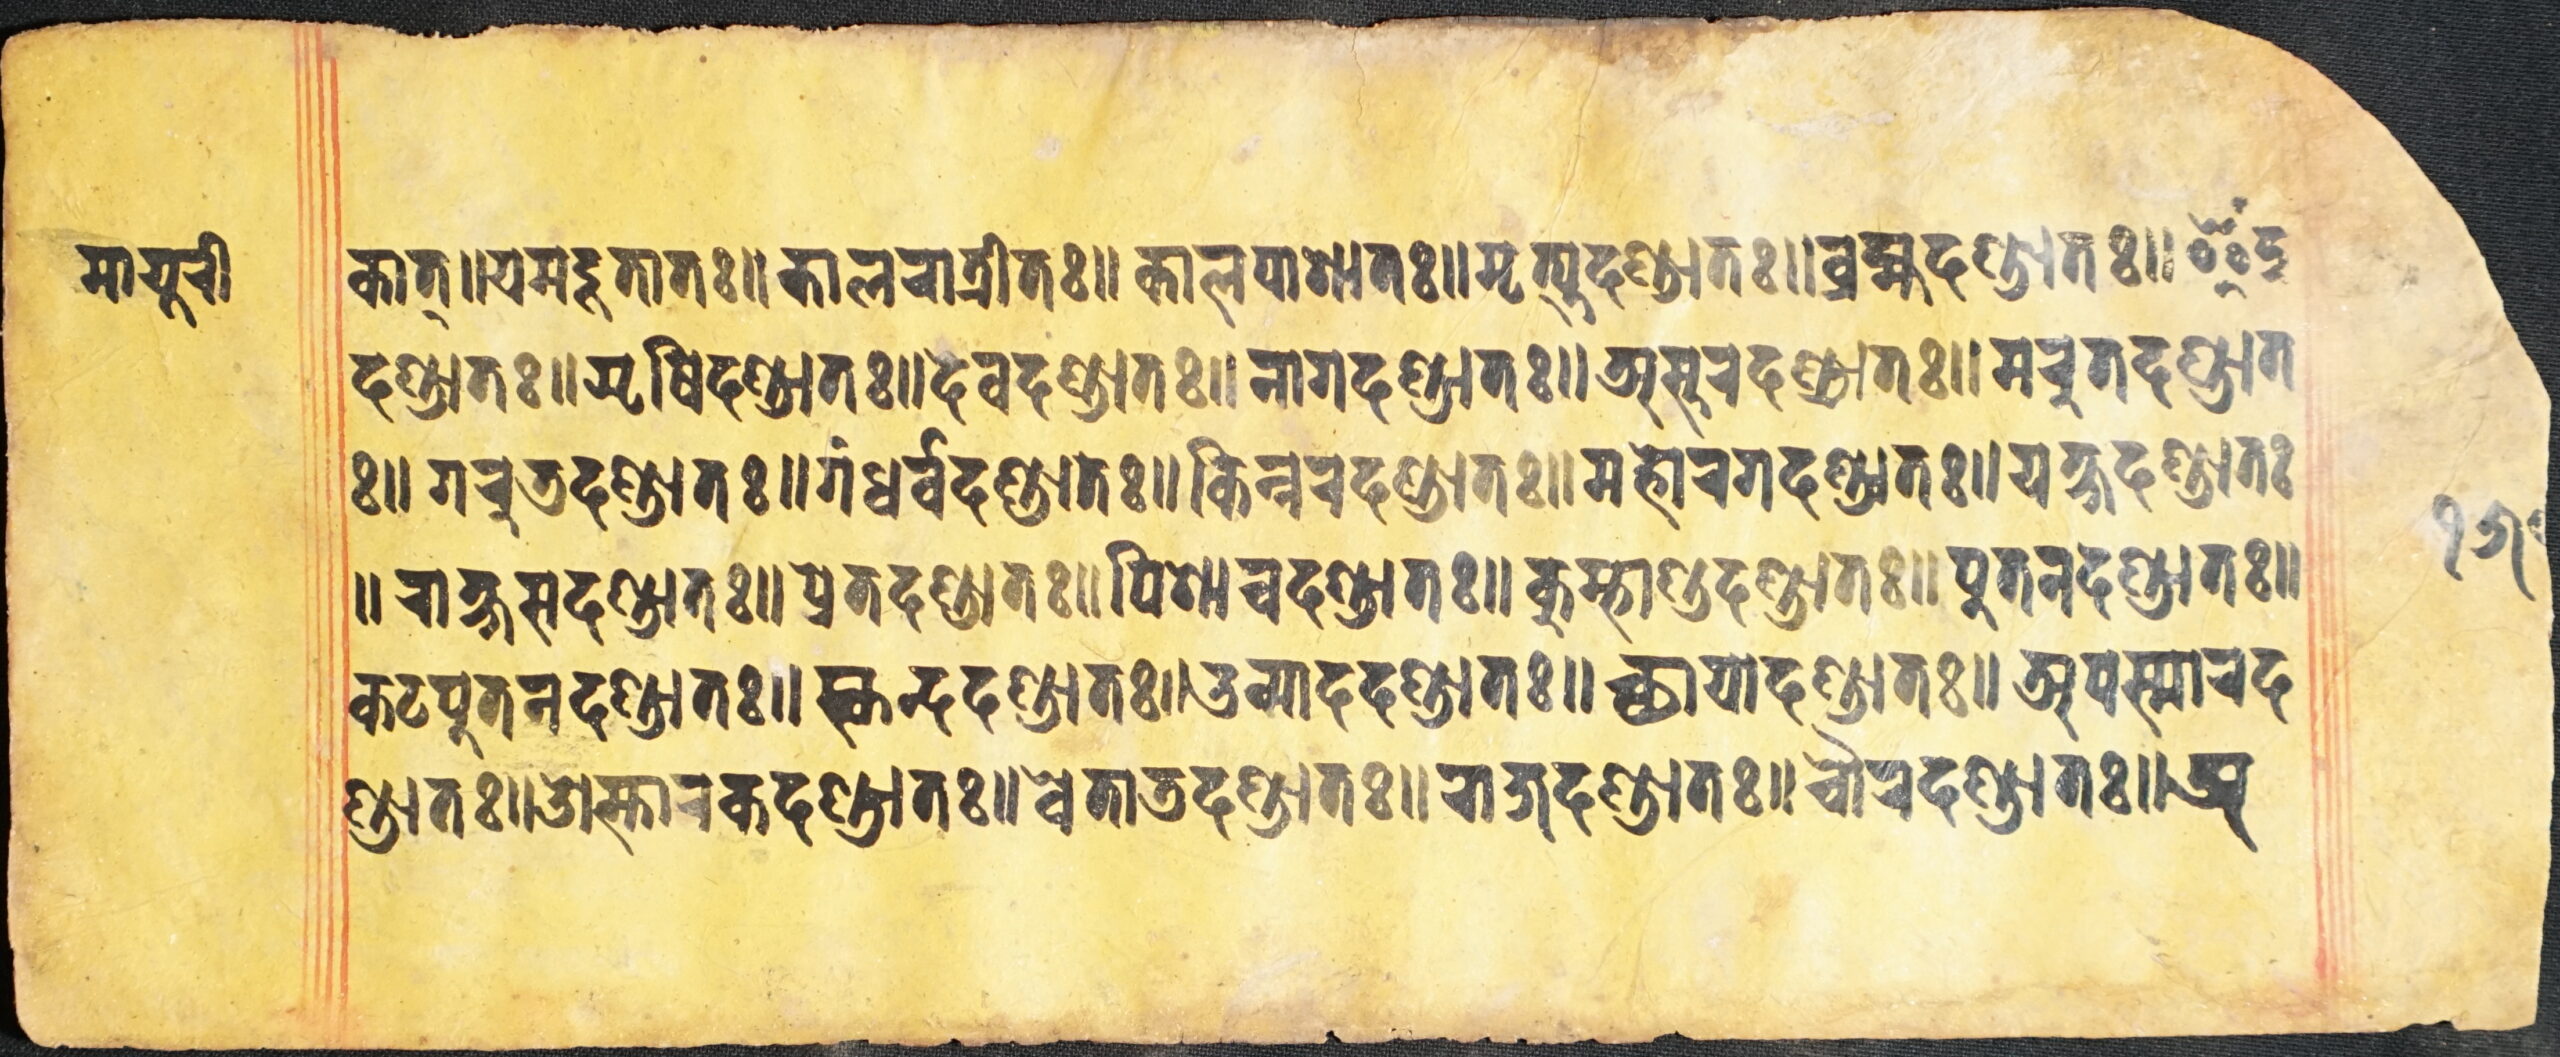 मायुरी
कात्॥यमदूतातः॥कालरात्रीतः॥कालपाशातः॥मृत्युदण्डातः॥ब्रह्मदण्डातः॥इंद्र
दण्डातः॥ऋषिदण्डातः॥देवदण्डातः॥नागदण्डातः॥असुरदण्डातः॥मरुतदण्डात
ः॥गरुडदण्डातः॥गंधर्वदण्डातः॥किन्नरदण्डातः॥महोरगदण्डातः॥यक्षदण्डातः
॥राक्षसदण्डातः॥प्रेतदण्डातः॥पिशाचदण्डातः॥कुम्भाण्डदण्डातः॥पुतनदण्डातः॥
कटपुतनदण्डातः॥स्कन्ददण्डातः॥उन्माददण्डातः॥च्छायादण्डातः॥अपस्मारद
ण्डातः॥ओस्तारकदण्डातः॥वेताडदण्डातः॥राजदण्डातः॥चौरदण्डातः॥अ